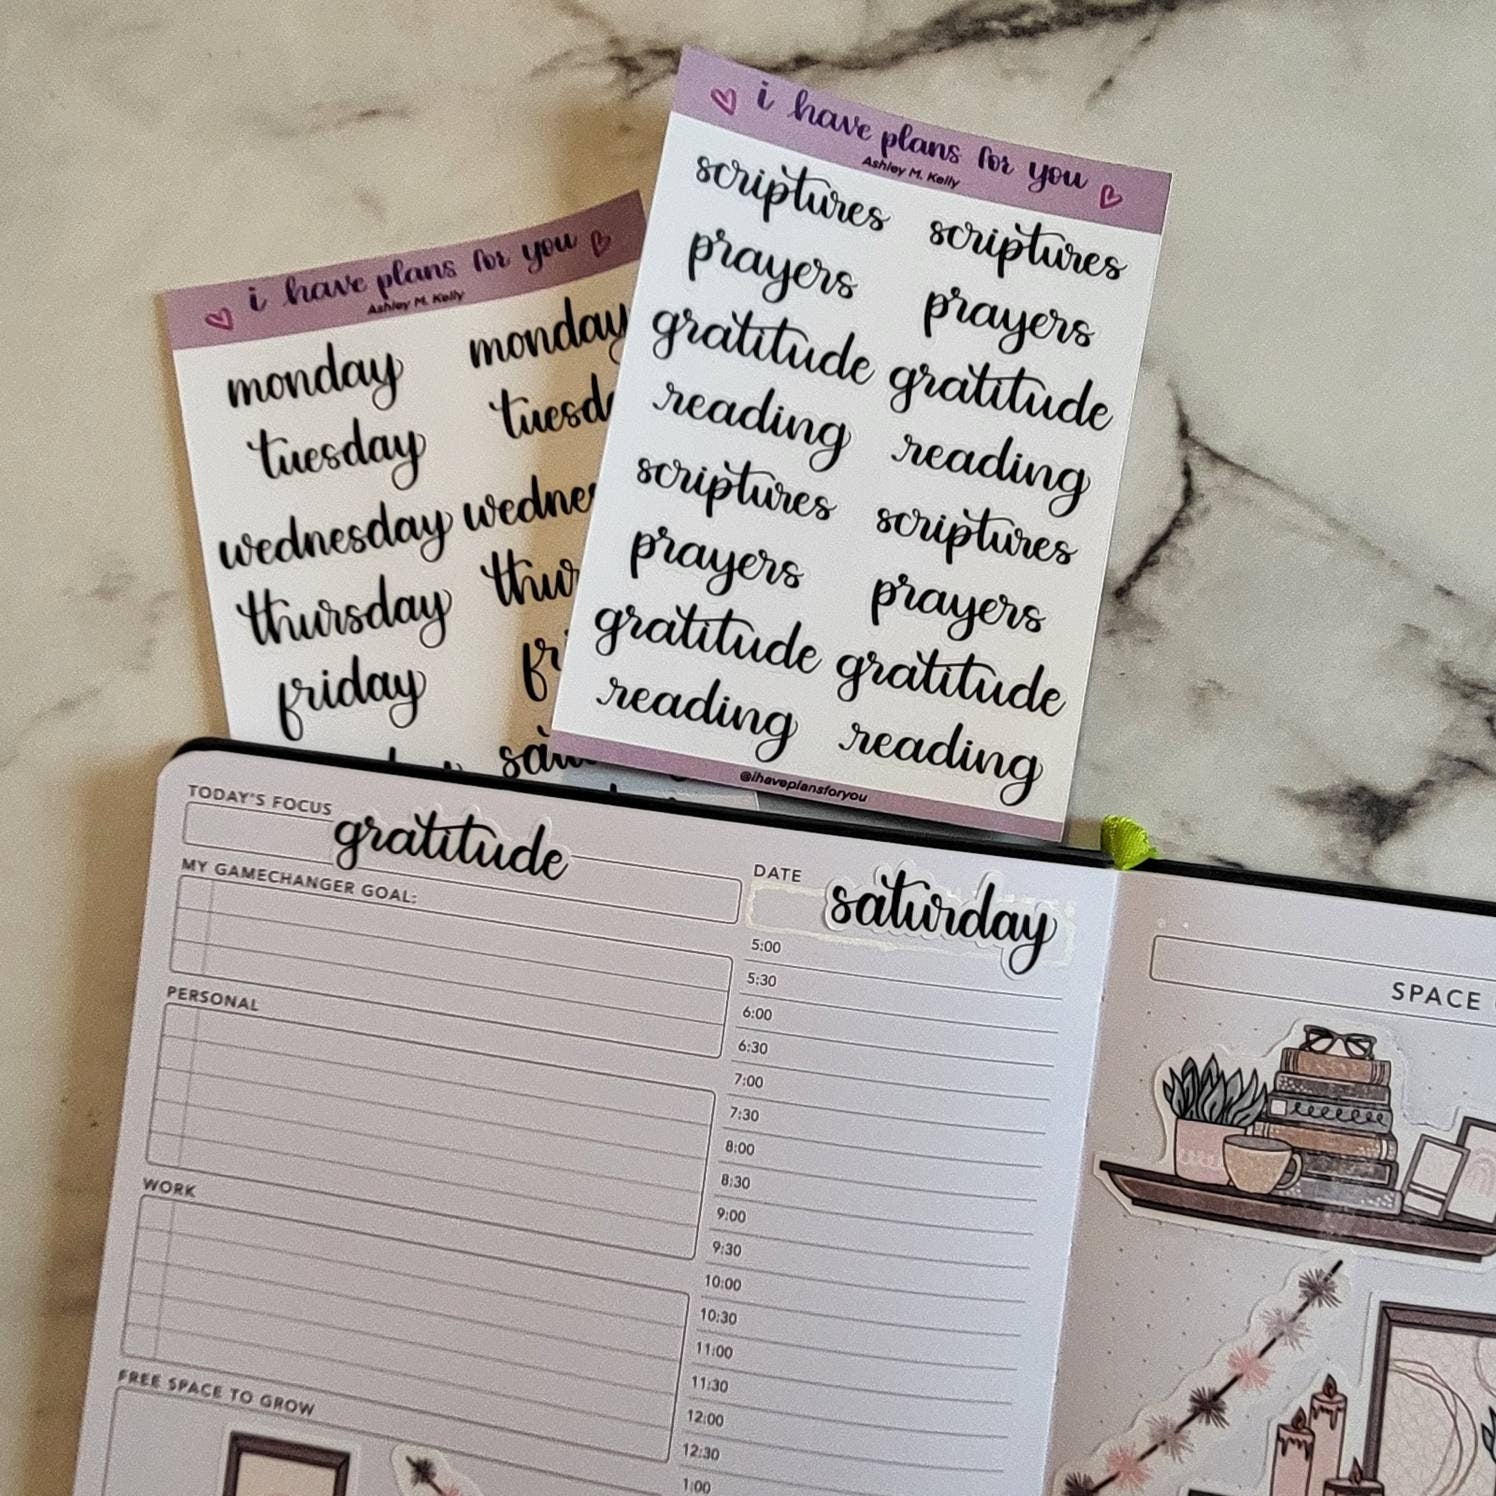 i have plans for you
Ashley M. Kelly
scriptures scriptures
prayers prayers
gratitude gratitude
reading reading
scriptures scriptures
prayers prayers
gratitude gratitude
reading reading
@ihaveplansforyou
i have plans for you
Ashley M. Kelly
monday monday
tuesday
wednesday
thursday
friday
TODAY'S FOCUS
gratitude
MY GAMECHANGER GOAL:
PERSONAL
WORK
FREE SPACE TO GROW
DATE
saturday
5:00
5:30
6:00
6:30
7:00
7:30
8:00
8:30
9:00
9:30
10:00
10:30
11:00
11:30
12:00
12:30
1:00
SPACE